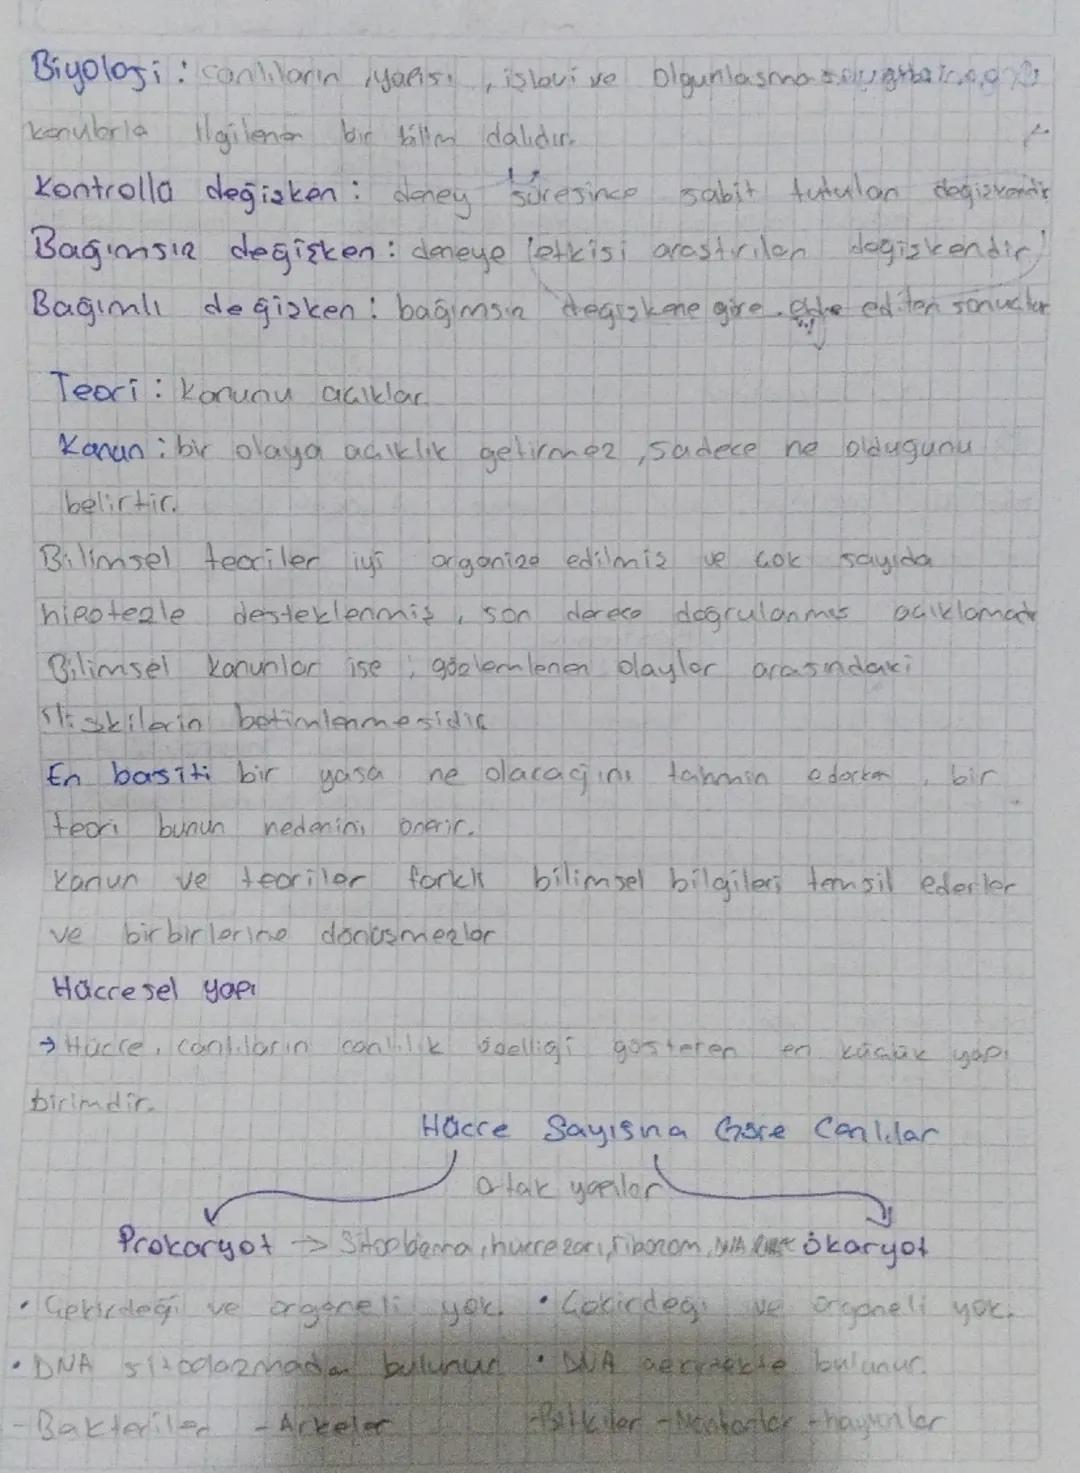 Biyoloji : canlıların yapısı, işlevi ve Olgunlaşma
konularla ilgilenen bir bilim dalıdır.
Kontrollü değişken : deney süresince sabit tutulan değişkendir
Bağımsız değişken : deneye etkisi araştırılan değişkendir
Bağımlı değişken : bağımsız değişkene göre elde edilen sonuçlar
Teori : Kanunu açıklar
Kanun : bir olaya açıklık getirmez, sadece ne olduğunu
belirtir.
Bilimsel teoriler iyi organize edilmiş ve çok sayıda
hipotezle desteklenmiş, son derece doğrulanmış açıklamadır
Bilimsel kanunlar ise ; gözlemlenen olaylar arasındaki
ilişkilerin betimlenmesidir
En basiti bir yasa ne olacağını tahmin ederken, bir
teori bunun nedenini önerir.
Kanun ve teoriler farklı bilimsel bilgileri temsil ederler
ve birbirlerine dönüşmezler
Hücresel yapı
→ Hücre, canlıların canlılık özelliği gösteren en küçük yapı
birimdir.
Hücre Sayısına Göre Canlılar
Ortak yapılar
Prokaryot → Sitoplazma, hücre zarı, ribozom, DNA Ökaryot
• Çekirdeği ve organeli yok. • Çekirdeği ve organeli yok.
• DNA sitoplazmada bulunur • DNA çekirdekte bulunur.
- Bakteriler - Arkeler - Bitkiler - Mantarlar - hayvanlar